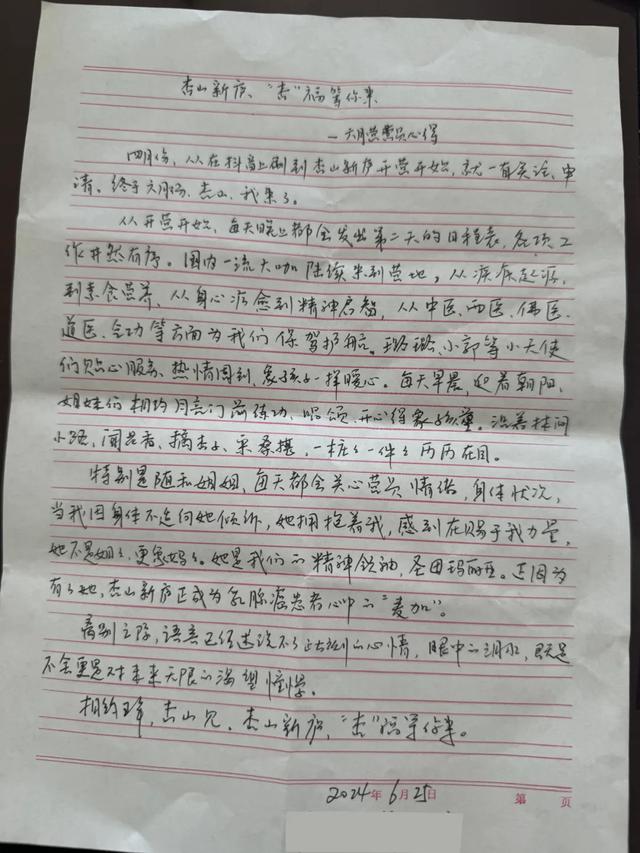 杏山新序、“杏”福等你来
—六月营营员心得
四月份，从在抖音上刷到杏山新序开营开始，就一直关注、申
请。终于六月场，杏山，我来了。
从开营开始，每天晚上都会发出第二天的日程表，各项工
作井然有序。国内一流大咖陆续来到营地，从疾病起源，
到素食营养、从身心疗愈到精神启智，从中医、西医、佛医、
道医、气功等方面为我们保驾护航。璐璐、小郭等小天使
们贴心服务、热情周到，象孩子一样暖心。每天早晨，迎着朝阳，
姐妹们相约月亮门前练功、唱颂，开心得象个孩童。沿着林间
小路，闻花香、摘杏子、采桑椹，一桩桩一件件历历在目。
特别是随和姐姐，每天都会关心营员情绪，身体状况，
当我因身体不适向她倾诉，她拥抱着我，感到在赐予我力量，
她不是姐姐，更象妈妈。她是我们的精神领袖，圣母玛丽亚。正因为
有了她，杏山新序正成为乳腺癌患者心中的“麦加”。
离别之际，语言已经述说不了此刻的心情，眼中的泪水，既是
不舍更是对未来无限的渴望憧憬。
相约，杏山见，杏山新序，“杏”福等你来。
2024年6月25日
第 页